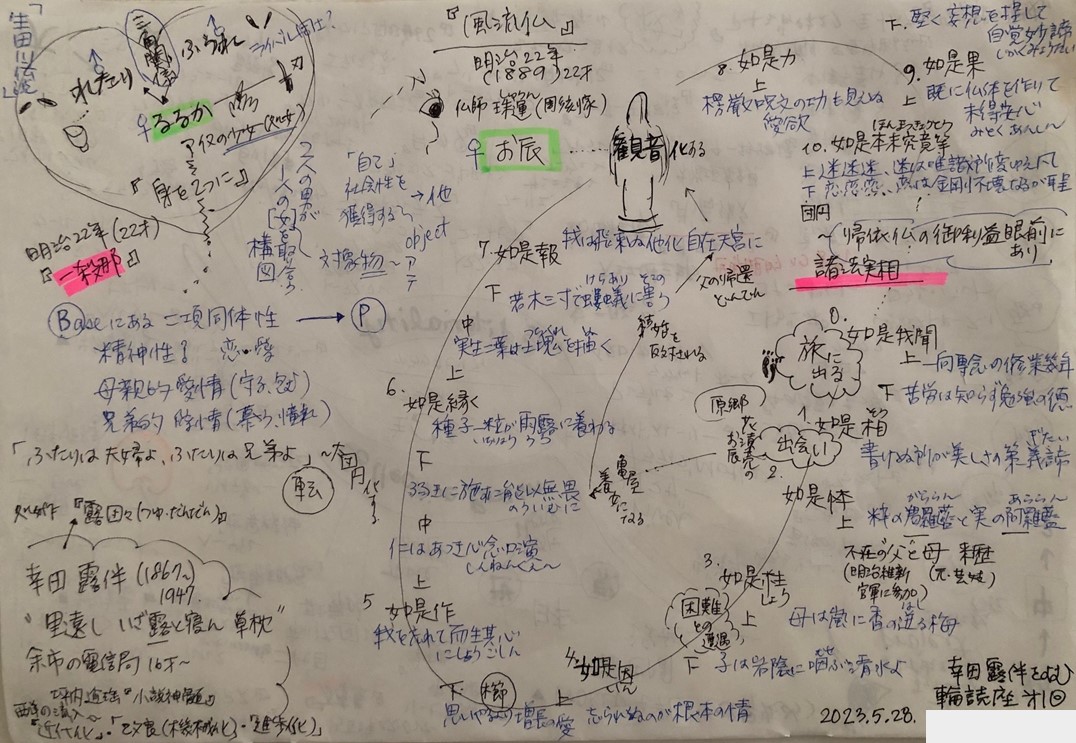 『風流仏』
明治22年
(1889) 22才
仏師 珠運
♀ お辰 …… 観音化する
『生田川伝説』
三角関係
♀るるか
『身を2つに』
明治22年 (22才)
『一刹那』
2人の男が
一人の女を取り合う
構図
「自己」
社会性を
獲得する
→他
object
対象物〜
Baseにある 二項同体性 → P
精神性
恋・愛
母親的愛情
兄弟的
「ふたりは夫婦よ、ふたりは兄弟よ」〜大団円化する
転
処女作『露団々(つゆだんだん)』
幸田露伴 (1867〜
1947
"里遠し いざ露と寝ん 草枕"
余市の電信局 16才〜
坪内逍遥『小説神髄』
「近代化」・「改良(機械化)・進歩化」
0. 如是我聞
旅に
出る
上 一向専念の修業幾年
下 苦労は知らず勉強の徳
1. 如是相
出会い
書けぬ所が美しさの第一義諦
原郷
花漬売の
お辰
2. 如是体
上 粋の羯羅藍と実の阿羅藍
不在の"父"と母 来歴
(明治維新
官軍に参加)
(元・芸妓)
亀屋
養女になる
3. 如是性
しょう
上 母は嵐に香の迸る梅
下 子は岩陰に咽ぶ清水よ
困難
との
遭遇
4. 如是因
いん
上 忘られぬのが根本の情
下 思いやるより増長の愛
5 如是作
上 我を忘れて而生其心
にしょうごしん
中 仁はあつき心念口演
しんねんくえん
下 弱きに施すに能以無畏
のういむい
6. 如是縁
上 種子一粒が雨露に養わる
中 実生二葉は土塊を抽く
下 若木三寸で螻蟻に害う
7. 如是報
我は飛来ぬ他化自在天宮に
父の帰還
結婚を
反対される
8. 如是力
上 楞厳呪文の功も見えぬ
愛欲
下. 堅く妄想を捏して
自覚妙諦
9. 如是果
上 既に仏体を作りて
未得安心
みとくあんしん
10. 如是本末究竟等
上 迷迷迷、迷は唯識所変ゆえ凡
下 恋恋恋、恋は金剛不壊なるが聖
団円
〜帰依仏の御利益眼前に
あり
諸法実相
幸田露伴をよむ
輪読座 オ1回
2023.5.28.